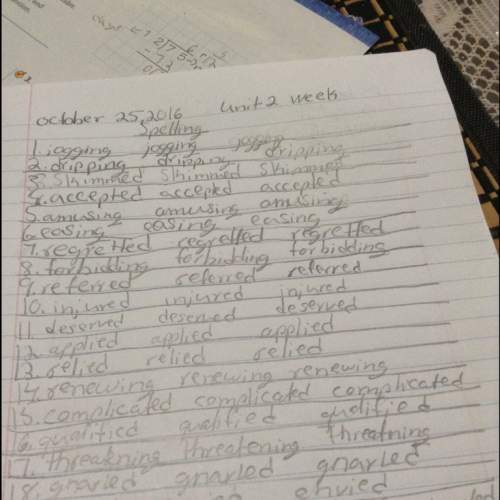 october 25, 2016 Unit 2 week
Spelling
1. jogging jogging jogging
2. dripping dripping dripping
3. skimmed skimmed skimmed
4. accepted accepted accepted
5. amusing amusing amusing
6. easing easing easing
7. regretted regretted regretted
8. forbidding forbidding forbidding
9. referred referred referred
10. injured injured injured
11. deserved deserved deserved
12. applied applied applied
13. relied relied relied
14. renewing renewing renewing
15. complicated complicated complicated
16. qualified qualified qualified
17. threatning threatening threatning
18. gnarled gnarled gnarled
envied